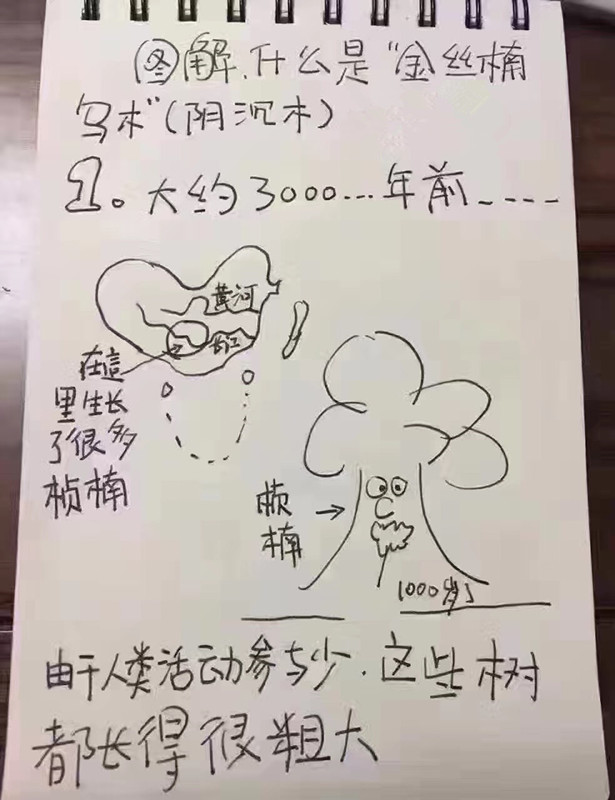 图解.什么是“金丝楠
乌木”(阴沉木)
1。大约3000...年前-----
黄河
长江
在這
里生长
了很多
桢楠
桢
楠
1000岁了
由于人类活动参与少.这些树
都长得很粗大